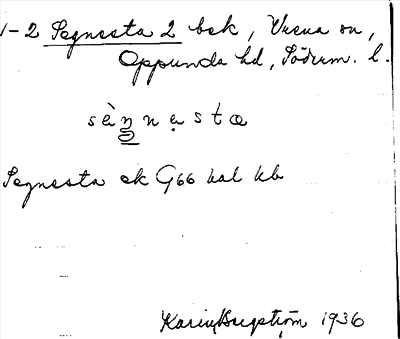 1-2 Segnesta 2 bsk, Vrena sn,
Oppunda hd, Söderm. l.
sèŋnạsta
Segnesta ek G66 kal kb
Karin Bergström 1936